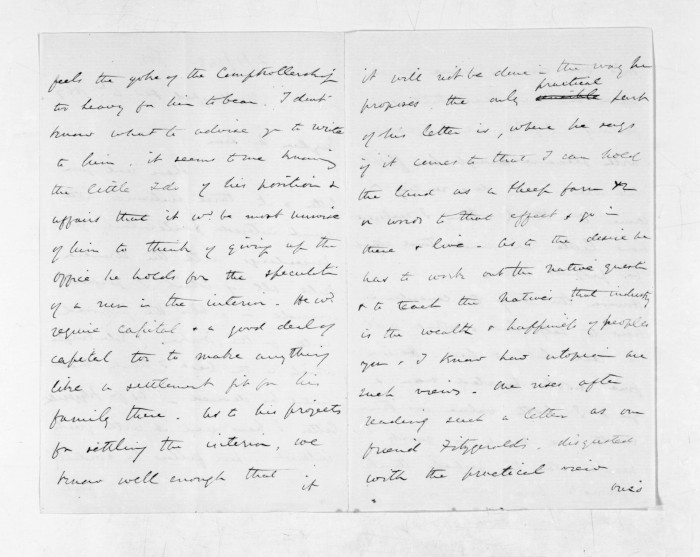 feels the yoke of the Comptrollership
too heavy for him to bear. I dont
know what to advise yo to write
to him. it seems to me knowing
the little I do of his position &
affairs that it wd be most unwise
of him to think of giving up the
office he holds for the speculatn
of a run in the interior. He wd
require capital & a good deal of
capital too to make anything
like a settlement fit for his
family there. As to his projects
for settling the interior, we
know well enough that
it
it will not be done in the way he
practical
proposes. the only sensible part
of his letter is, where he says
if it comes to that I can hold
the land as a sheep farm &c
or words to that effect & go in
there & live. As to the desire he
has to work out the native questn
& to teach the Natives that industry
is the wealth & happiness of peoples
you & I know how utopian are
such views. One rises after
reading such a letter as our
friend Fitzgerald's. disgusted
with the practical view
one's